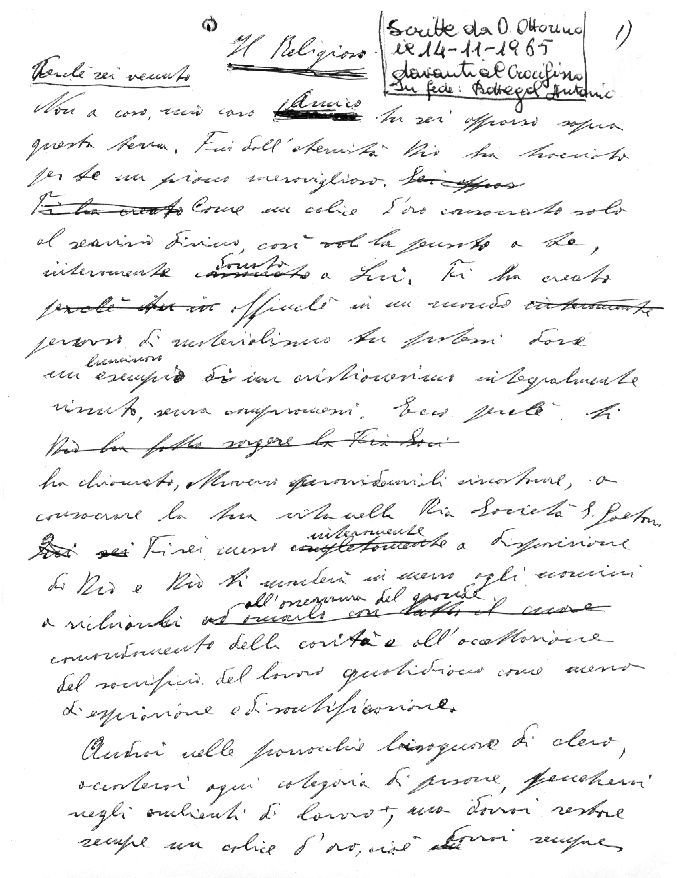 Scritte da D. Ottorino
il 14-11-1965
davanti al Crocifisso
In fede: Bottegal Antonio
1)
Il Religioso
Perché sei venuto
Non a caso, mio caro Amico tu sei apparso sopra
questa terra. Fin dall'eternità Dio ha tracciato
per te un piano meraviglioso. Sei appar
Ti ha creato Come un calice d'oro consacrato solo
al servizio divino, così vol ha pensato a te,
interamente donato a Lui. Ti ha creato
perché affinché in un mondo interamente
pervaso di materialismo tu potessi dare
un luminoso esempio di un cristianesimo integralmente
vissuto, senza compromessi. Ecco perché ti
Dio ha fatto sorgere la Pia Soci
ha chiamato, attraverso provvidenziali circostanze, a
consacrare la tua vita nella Pia Società S. Gaetano
sei Ti sei messo completamente interamente a disposizione
di Dio e Dio ti manderà in mezzo agli uomini
a richiamarli ad amarlo con tutto il cuore all'osservanza del grande
comandamento della carità e all'accettazione
del sacrificio del lavoro quotidiano come mezzo
di espiazione e di santificazione.
Andrai nelle parrocchie bisognose di clero,
accosterai ogni categoria di persone,
negli ambienti di lavoro, ma dovrai restare
sempre un calice d'oro, cioè dovrai sempre